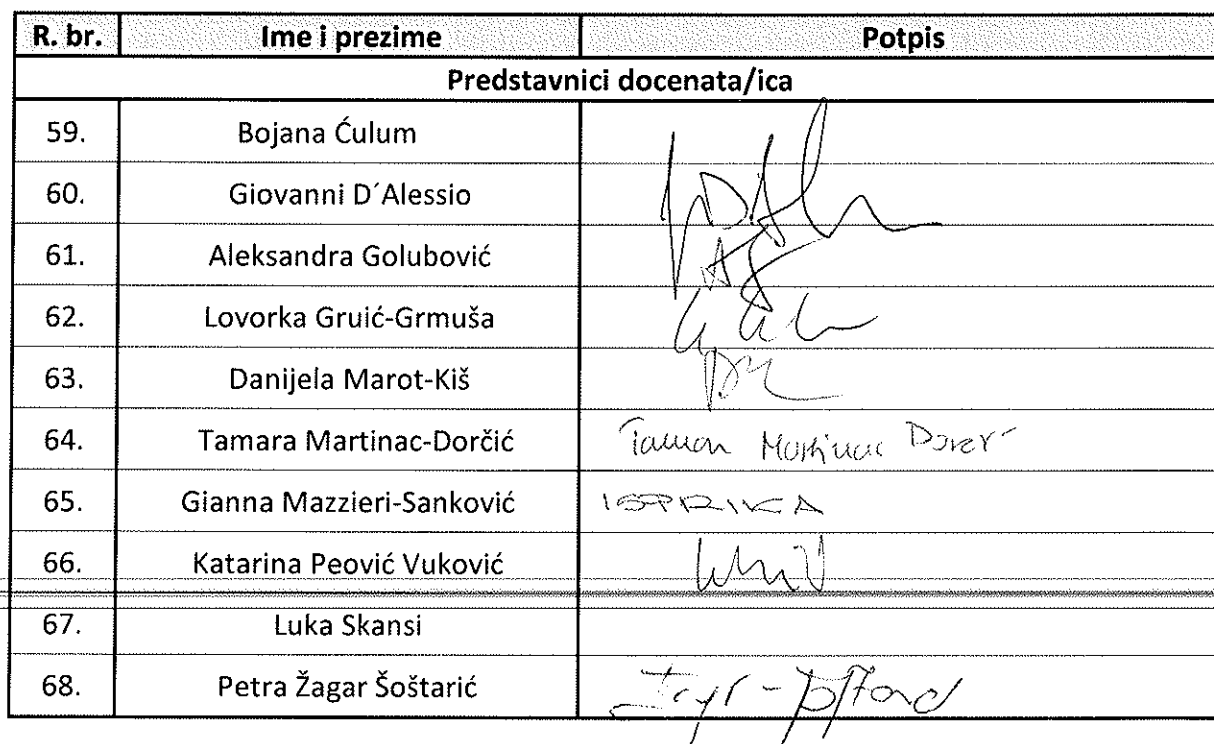 R. br. Ime i prezime Potpis
Predstavnici docenata/ica
59. Bojana Ćulum
60. Giovanni D´Alessio
61. Aleksandra Golubović
62. Lovorka Gruić-Grmuša
63. Danijela Marot-Kiš
64. Tamara Martinac-Dorčić
65. Gianna Mazzieri-Sanković ISPRIKA
66. Katarina Peović Vuković
67. Luka Skansi
68. Petra Žagar Šoštarić